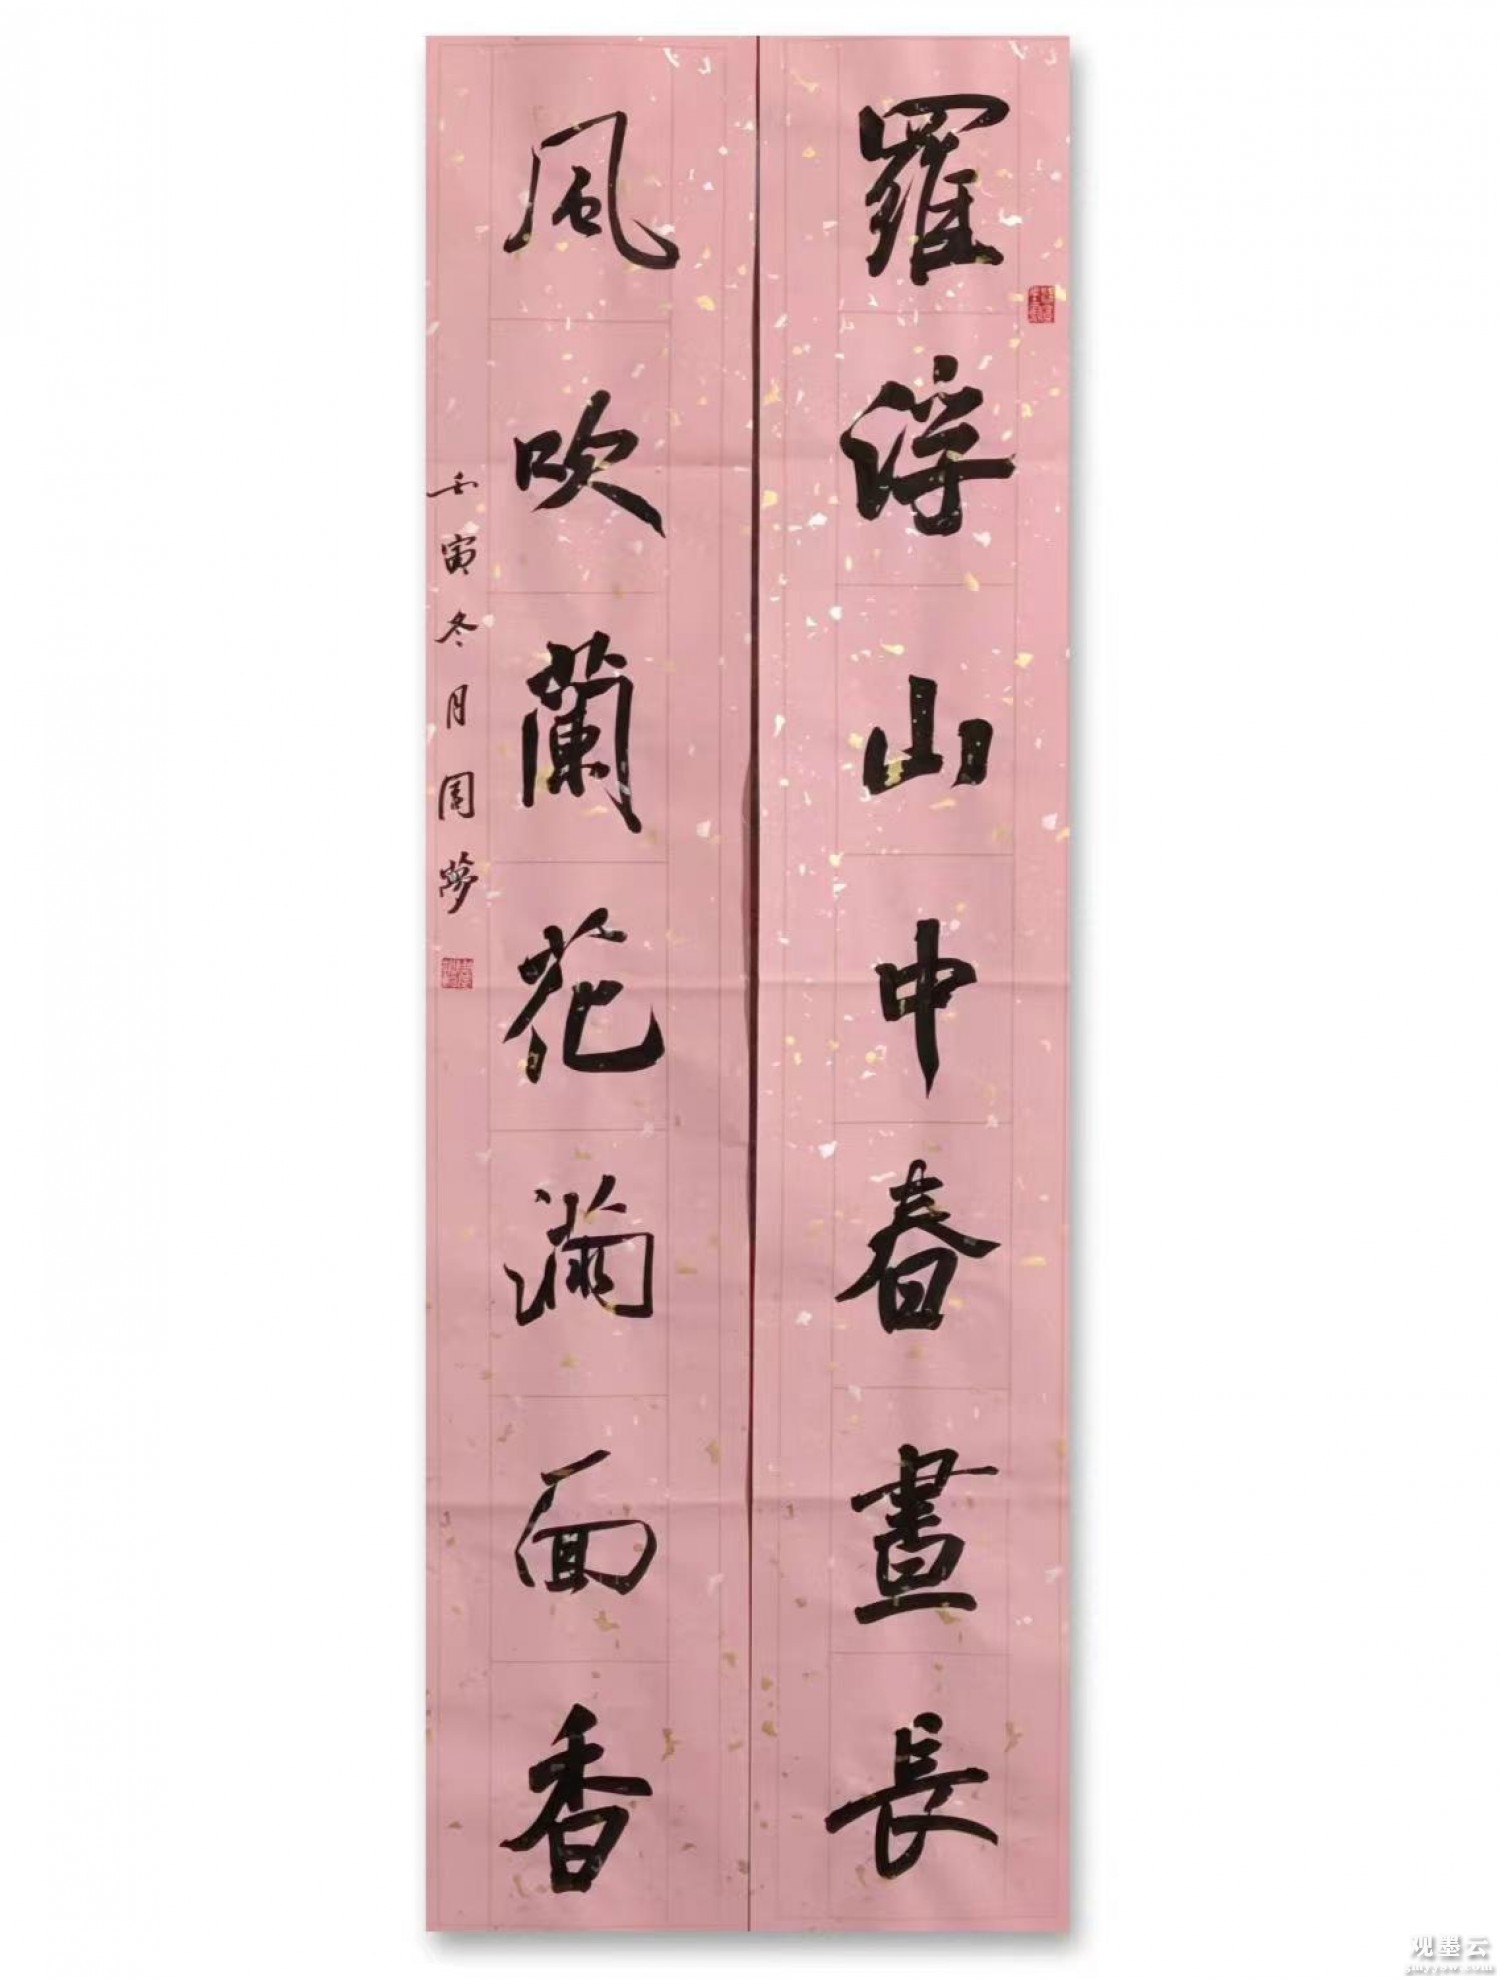 羅浮山中春晝長
風吹蘭花滿面香
壬寅冬月圓夢
观墨云
gmyysw.com